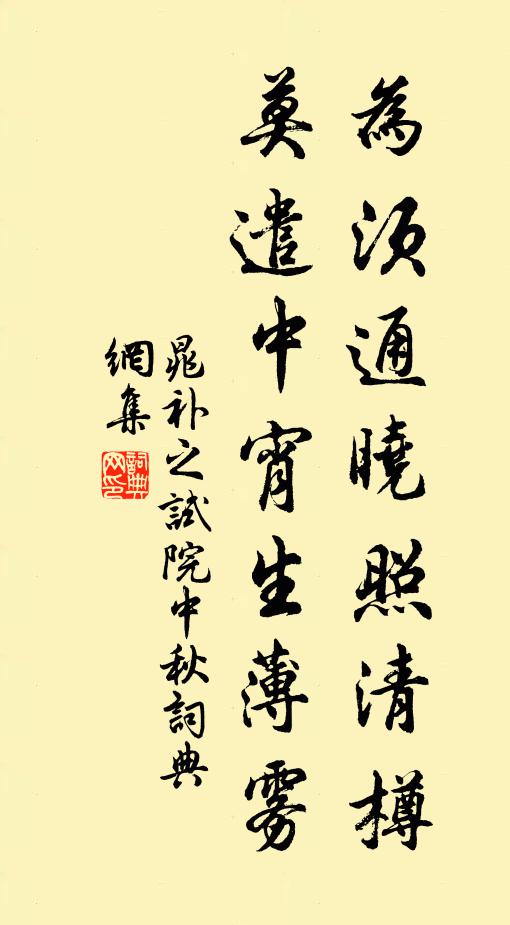 為須通曉照清樽
莫遣中宵生薄雾
晁补之試院中秋詞典
網集
詞典网印